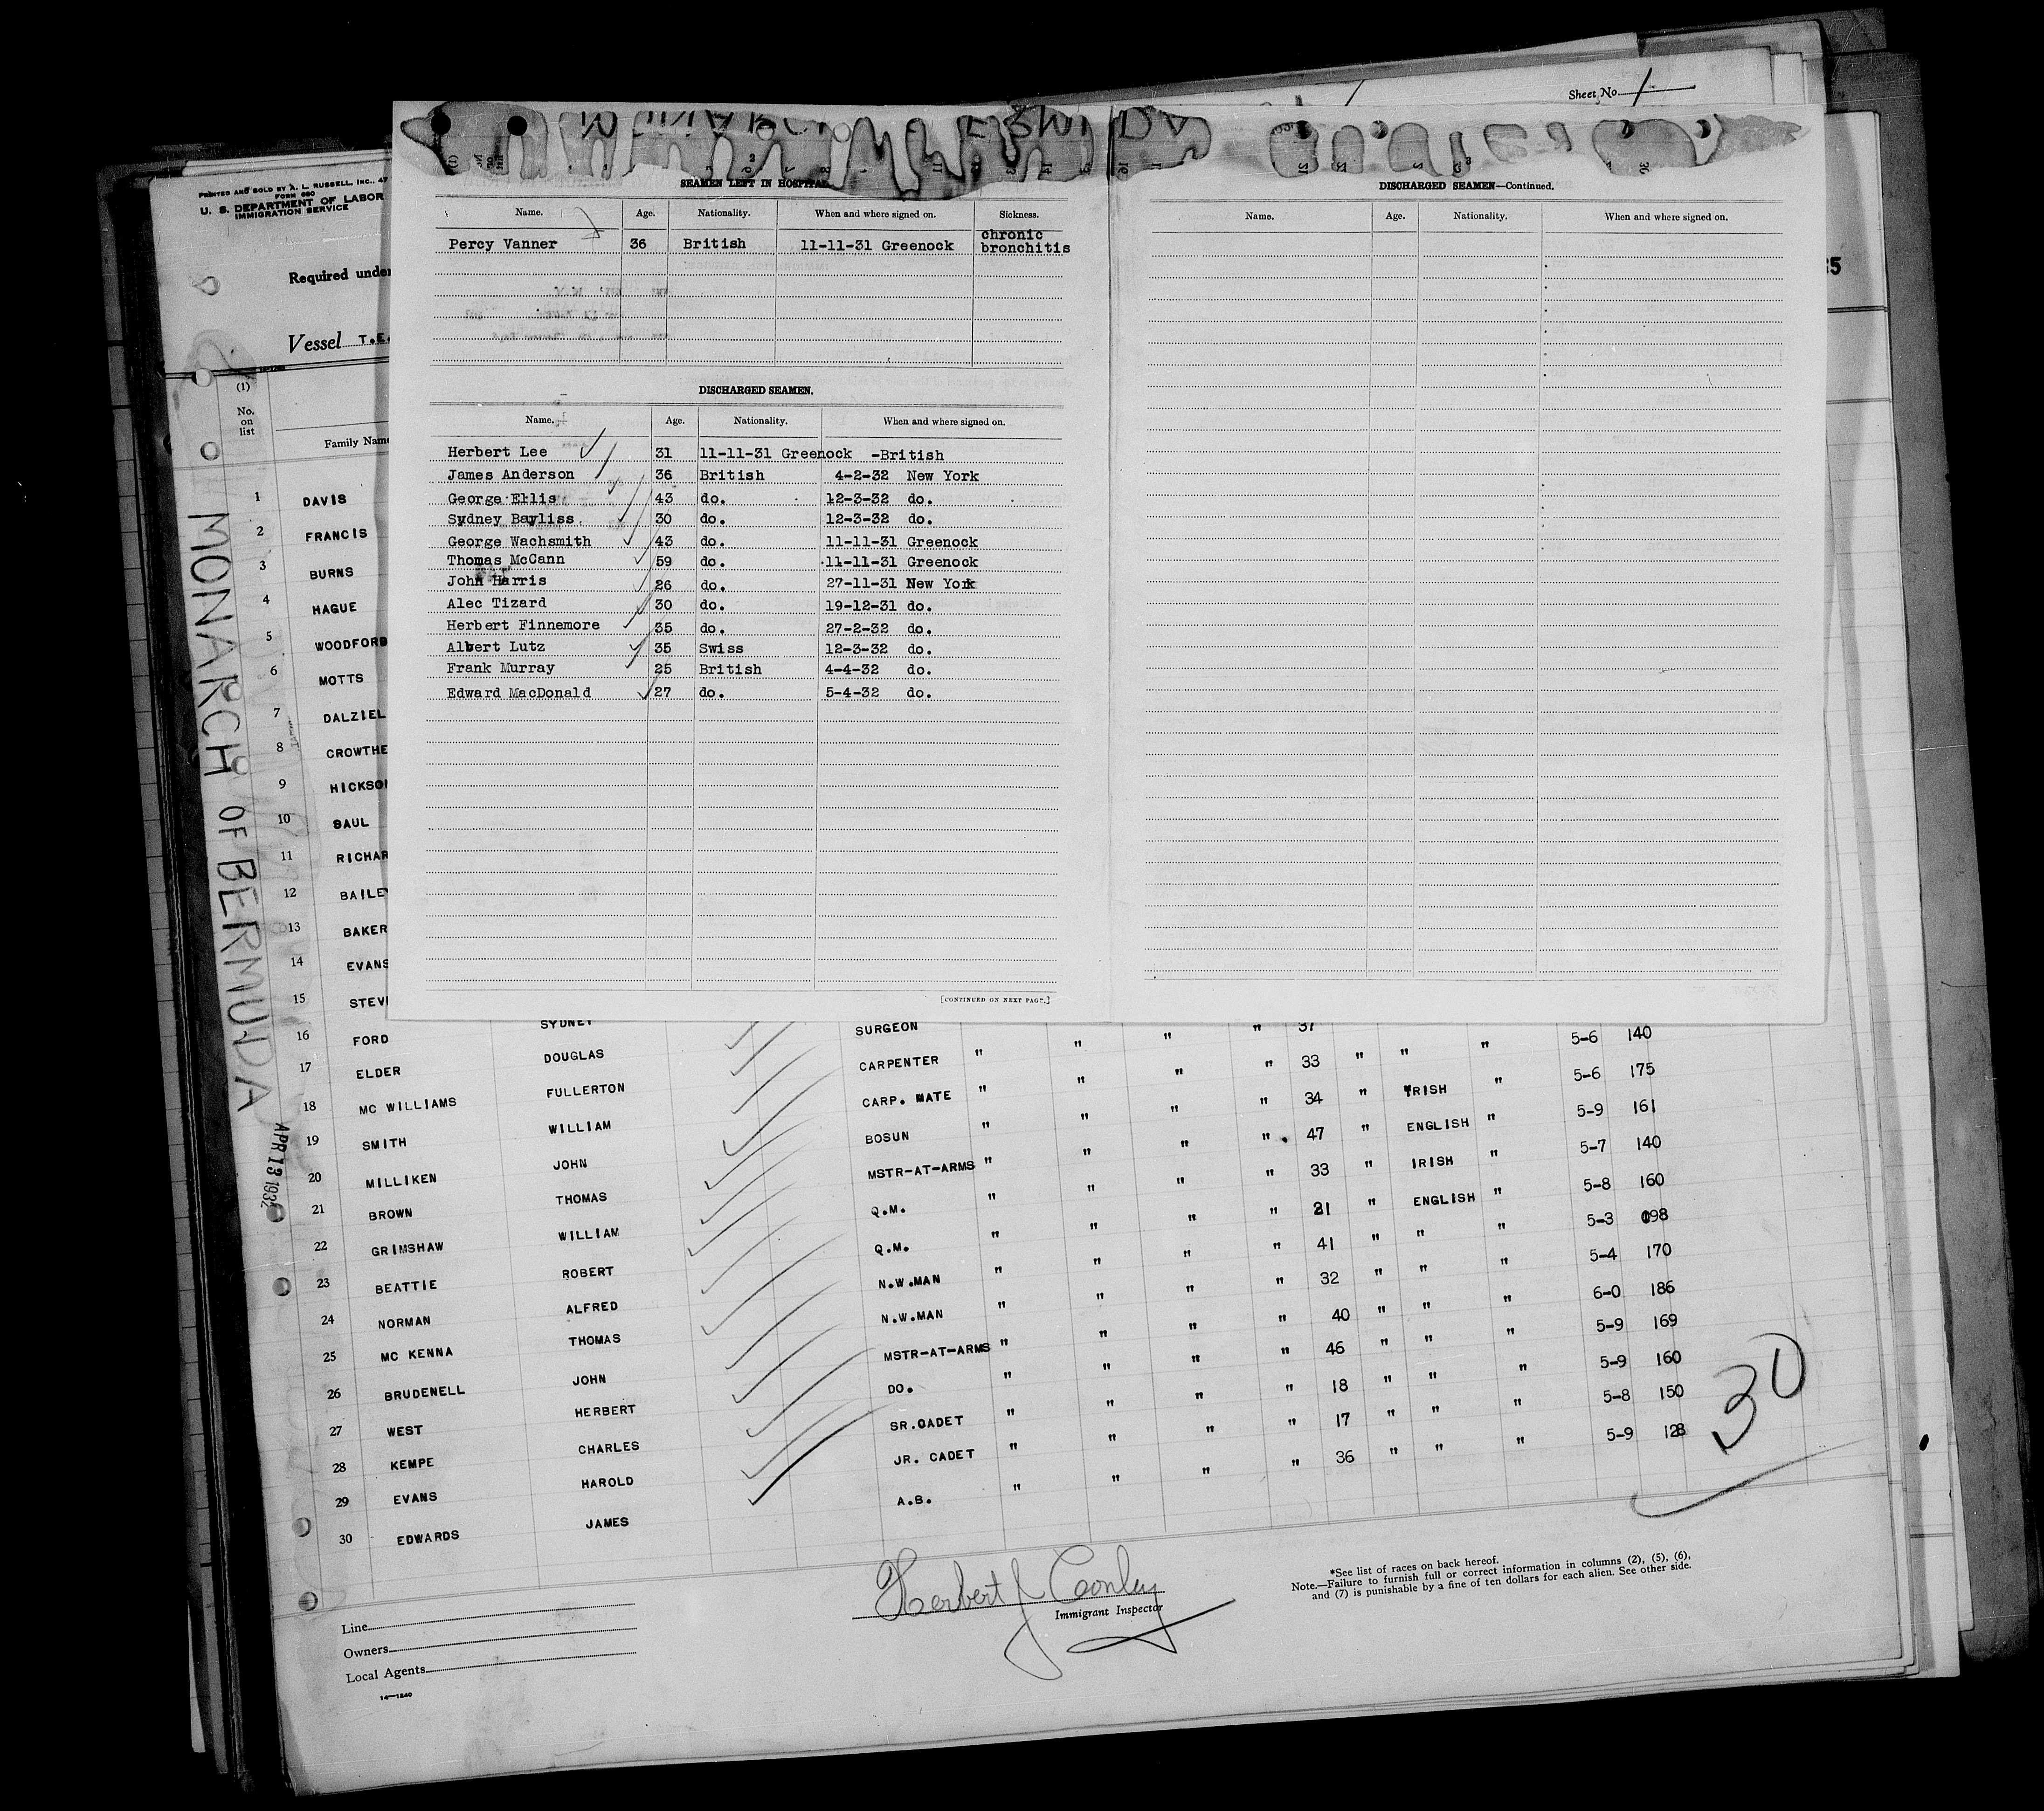 Sheet No 1
PRINTED AND SOLD BY A. L. RUSSELL, INC., 47
FORM 680
U. S. DEPARTMENT OF LABOR
IMMIGRATION SERVICE
Required under
Vessel T.E.
35
MONARCH OF BERMUDA
APR 13 1932
SEAMEN LEFT IN HOSPITAL
Name. Age. Nationality. When and where signed on. Sickness.
Percy Vanner 36 British 11-11-31 Greenock chronic bronchitis
DISCHARGED SEAMEN.
Name. Age. Nationality. When and where signed on.
Herbert Lee 31 11-11-31 Greenock -British
James Anderson 36 British 4-2-32 New York
George Ellis 43 do. 12-3-32 do.
Sydney Bayliss. 30 do. 12-3-32 do.
George Wachsmith 43 do. 11-11-31 Greenock
Thomas McCann 59 do. 11-11-31 Greenock
John Harris 26 do. 27-11-31 New York
Alec Tizard 30 do. 19-12-31 do.
Herbert Finnemore 35 do. 27-2-32 do.
Albert Lutz 35 Swiss 12-3-32 do.
Frank Murray 25 British 4-4-32 do.
Edward MacDonald 27 do. 5-4-32 do.
[CONTINUED ON NEXT PAGE.]
DISCHARGED SEAMEN—Continued.
Name. Age. Nationality. When and where signed on.
(1)
No. on list
Family Name
1 DAVIS
2 FRANCIS
3 BURNS
4 HAGUE
5 WOODFORD
6 MOTTS
7 DALZIEL
8 CROWTHE
9 HICKSON
10 SAUL
11 RICHAR
12 BAILEY
13 BAKER
14 EVANS
15 STEV
16 FORD SYDNEY
17 ELDER DOUGLAS SURGEON
18 MC WILLIAMS FULLERTON CARPENTER " " " " 37
19 SMITH WILLIAM CARP. MATE " " " " 33 " " " 5-6 140
20 MILLIKEN JOHN BOSUN " " " " 34 " IRISH " 5-6 175
21 BROWN THOMAS MSTR-AT-ARMS " " " " 47 " ENGLISH " 5-9 161
22 GRIMSHAW WILLIAM Q.M. " " " " 33 " IRISH " 5-7 140
23 BEATTIE ROBERT Q.M. " " " " 21 " ENGLISH " 5-8 160
24 NORMAN ALFRED N.W.MAN " " " " 41 " " " 5-3 198
25 MC KENNA THOMAS N.W.MAN " " " " 32 " " " 5-4 170
26 BRUDENELL JOHN MSTR-AT-ARMS " " " " 40 " " " 6-0 186
27 WEST HERBERT DO. " " " " 46 " " " 5-9 169
28 KEMPE CHARLES SR.CADET " " " " 18 " " " 5-9 160
29 EVANS HAROLD JR. CADET " " " " 17 " " " 5-8 150
30 EDWARDS JAMES A.B. " " " " 36 " " " 5-9 128
30
Herbert J Conley
Immigrant Inspector
*See list of races on back hereof.
Note.—Failure to furnish full or correct information in columns (2), (5), (6),
and (7) is punishable by a fine of ten dollars for each alien. See other side.
Line
Owners
Local Agents
14—1240